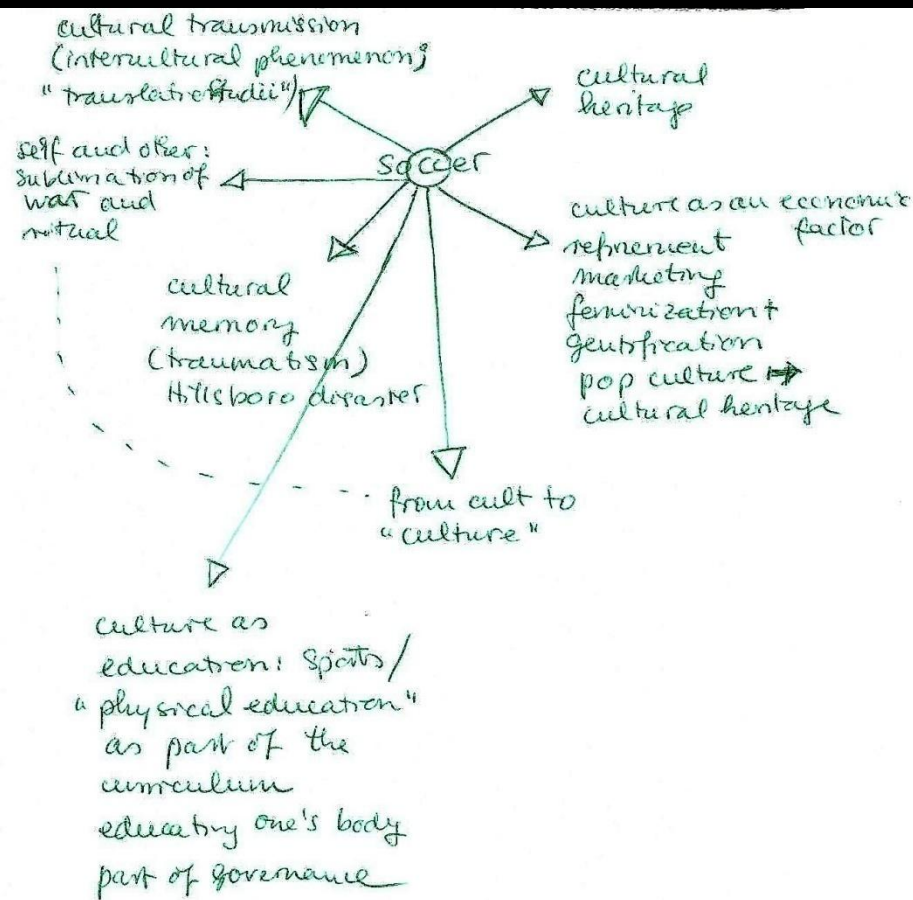 cultural transmission
(intercultural phenomenon;
"translatio studii")
cultural
heritage
soccer
self and other:
sublimation of
war and
ritual
culture as an economic
factor
refinement
marketing
feminization +
gentrification
pop culture →
cultural heritage
cultural
memory
(traumatism)
Hillsboro disaster
from cult to
"culture"
culture as
education: Sports/
"physical education"
as part of the
curriculum
educating one's body
part of governance